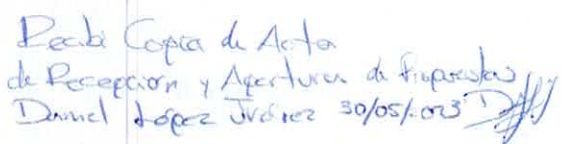 Recibí Copia de Acta
de Recepción y Apertura de Propuestas
Daniel López Juárez 30/05/2023